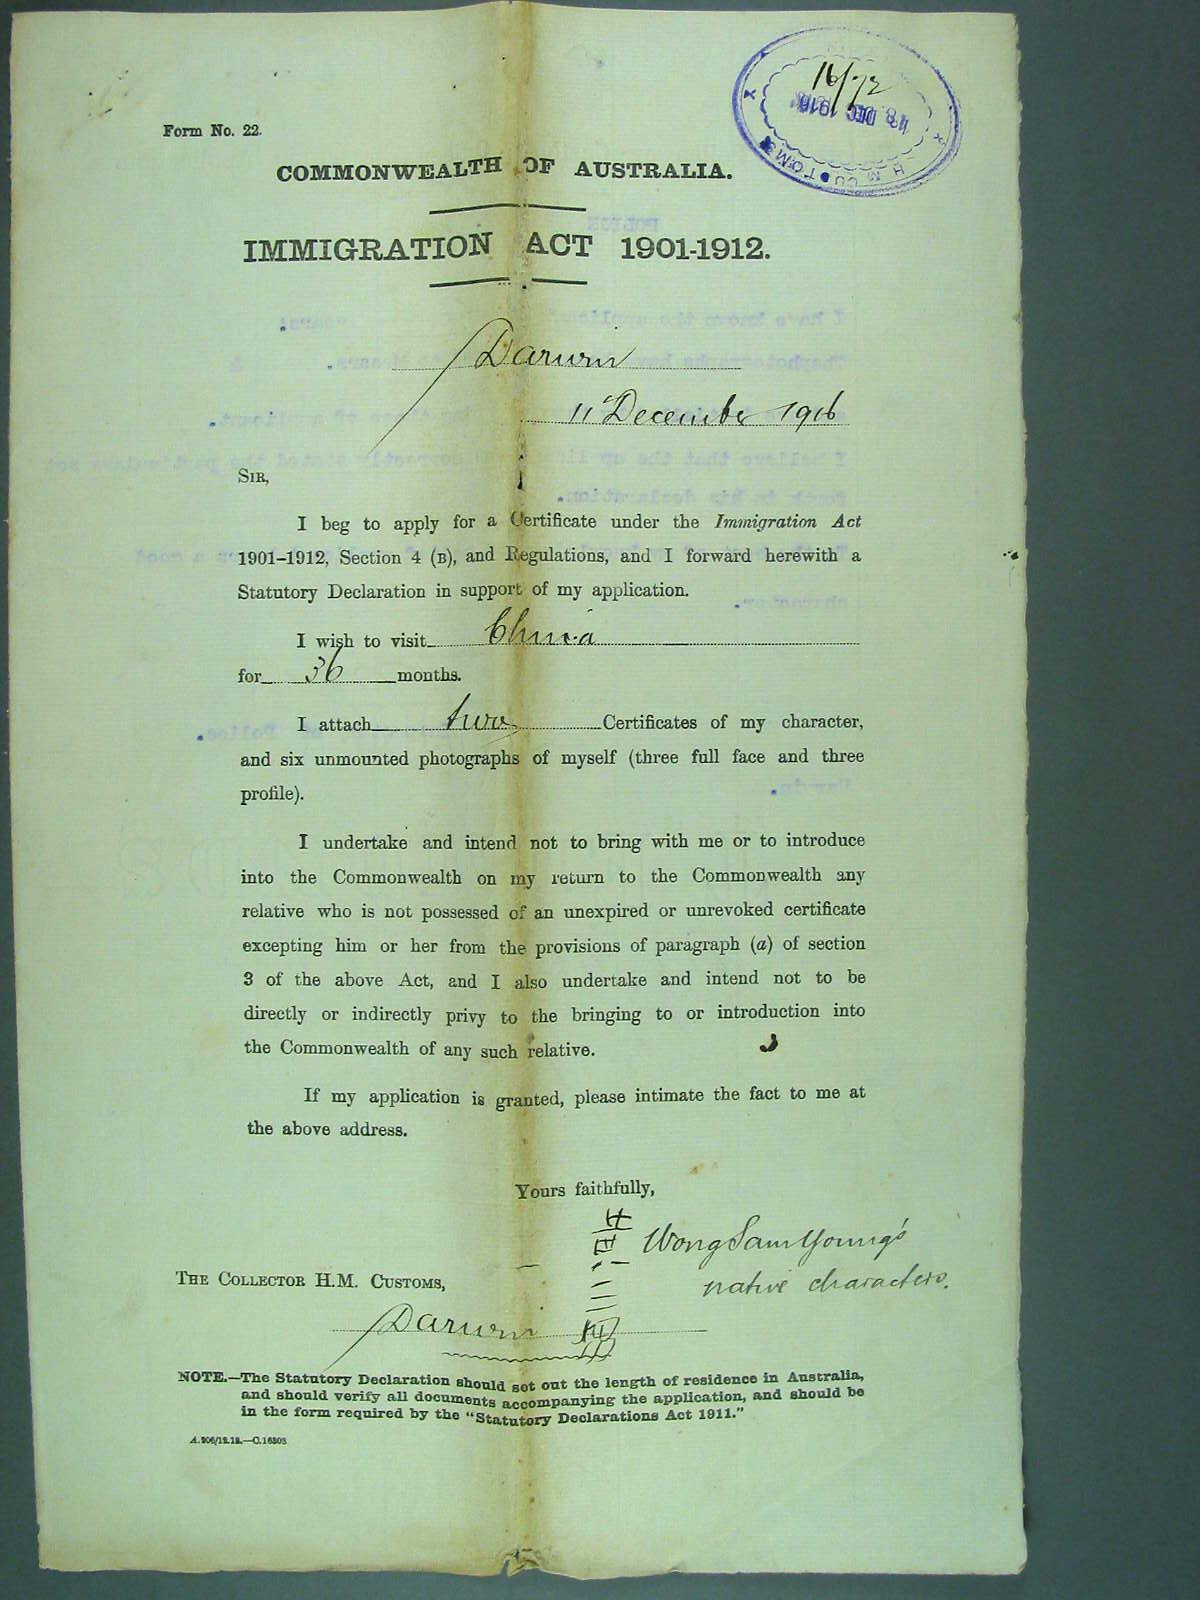 16/72
13 DEC 1916
H M CUSTOMS
Form No. 22.
COMMONWEALTH OF AUSTRALIA.
IMMIGRATION ACT 1901-1912.
Darwin
11th December 1916
SIR,
I beg to apply for a Certificate under the Immigration Act
1901–1912, Section 4 (B), and Regulations, and I forward herewith a
Statutory Declaration in support of my application.
I wish to visit China
for 36 months.
I attach two Certificates of my character,
and six unmounted photographs of myself (three full face and three
profile).
I undertake and intend not to bring with me or to introduce
into the Commonwealth on my return to the Commonwealth any
relative who is not possessed of an unexpired or unrevoked certificate
excepting him or her from the provisions of paragraph (a) of section
3 of the above Act, and I also undertake and intend not to be
directly or indirectly privy to the bringing to or introduction into
the Commonwealth of any such relative.
If my application is granted, please intimate the fact to me at
the above address.
Yours faithfully,
Wong Sam Young's
native characters.
THE COLLECTOR H.M. CUSTOMS,
Darwin
NOTE.—The Statutory Declaration should set out the length of residence in Australia,
and should verify all documents accompanying the application, and should be
in the form required by the "Statutory Declarations Act 1911."